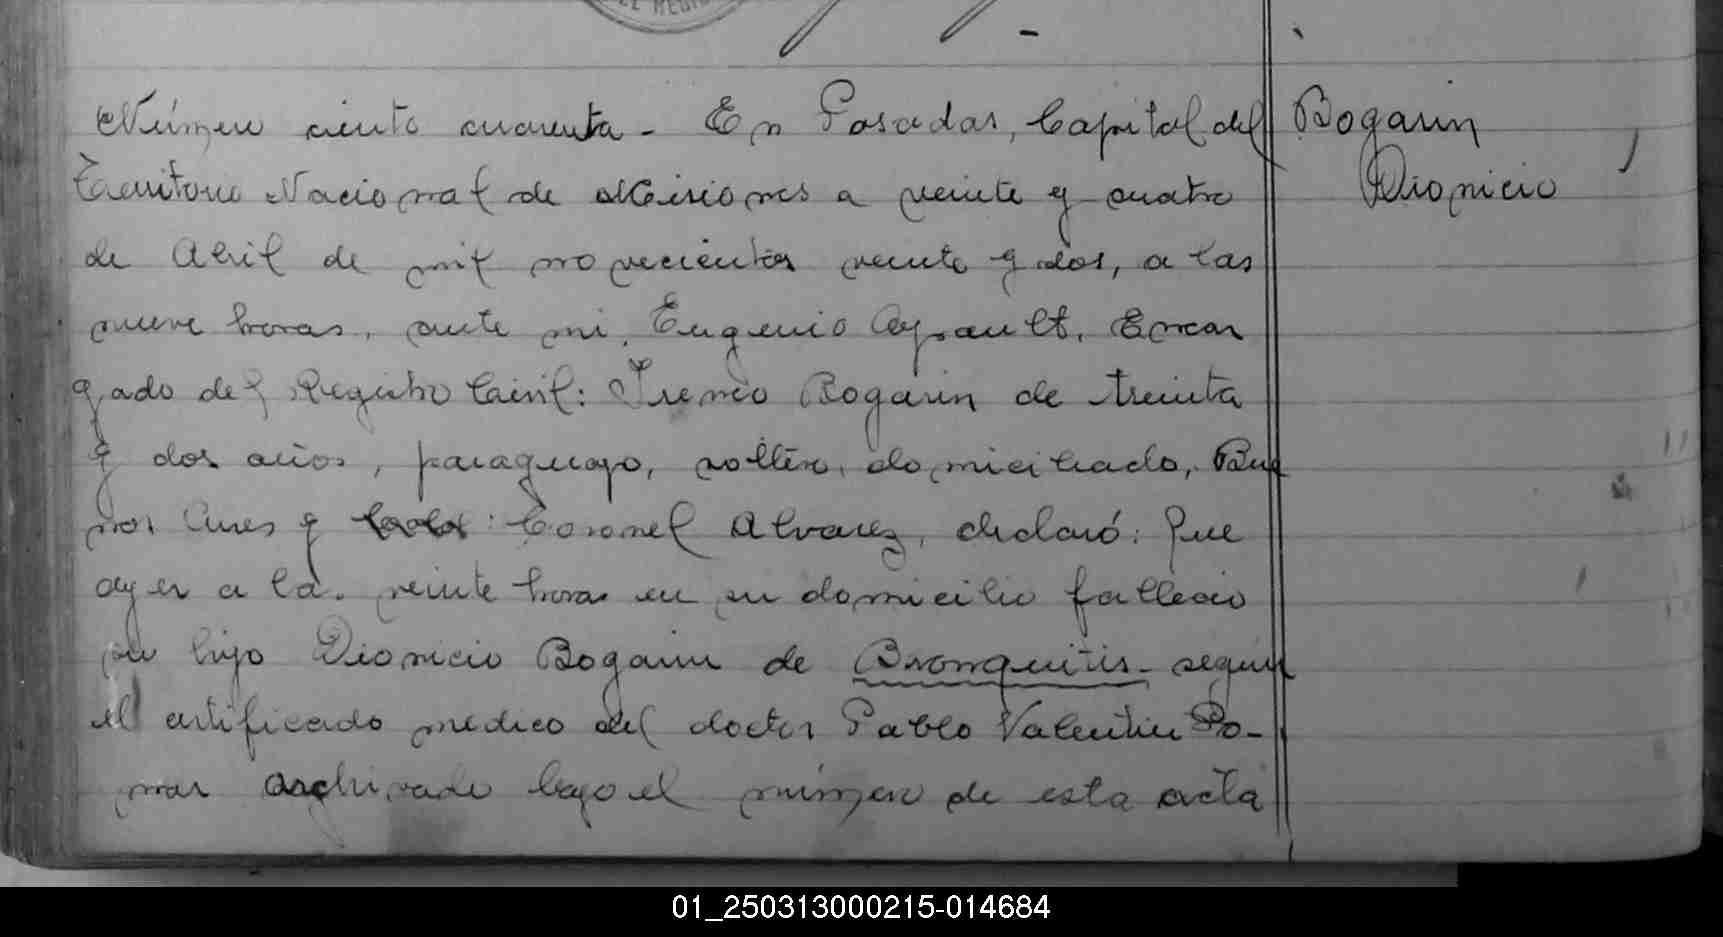 EL REGIS
Número ciento cuarenta - En Posadas, Capital del
Territorio Nacional de Misiones a veinte y cuatro
de Abril de mil novecientos veinte y dos, a las
nueve horas, ante mi, Eugenio Ayrault, Encar
gado del Registro Civil: Ireneo Bogarin de treinta
y dos años, paraguayo, soltero, domiciliado, Bue
nos Aires y Coronel Alvarez, declaró: Que
ayer a las veinte horas en su domicilio fallecio
su hijo Dionicio Bogarin de Bronquitis - según
el certificado medico del doctor Pablo Valentin Po-
mar archivado bajo el número de esta acta
Bogarin
Dionicio
01_250313000215-014684